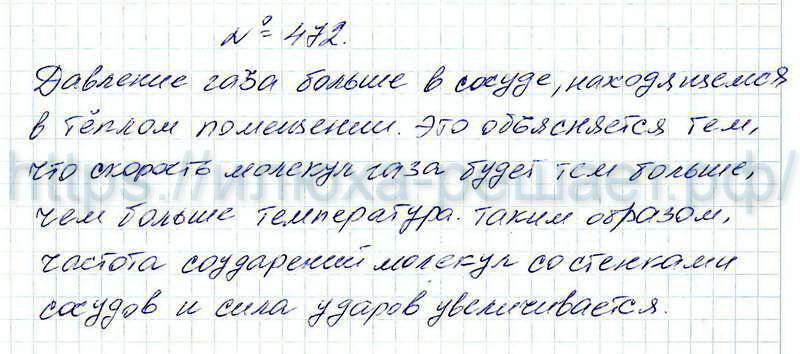 № 472.
Давление газа больше в сосуде, находящемся
в тёплом помещении. Это объясняется тем,
что скорость молекул газа будет тем больше,
чем больше температура. Таким образом,
частота соударений молекул со стенками
сосудов и сила ударов увеличивается.